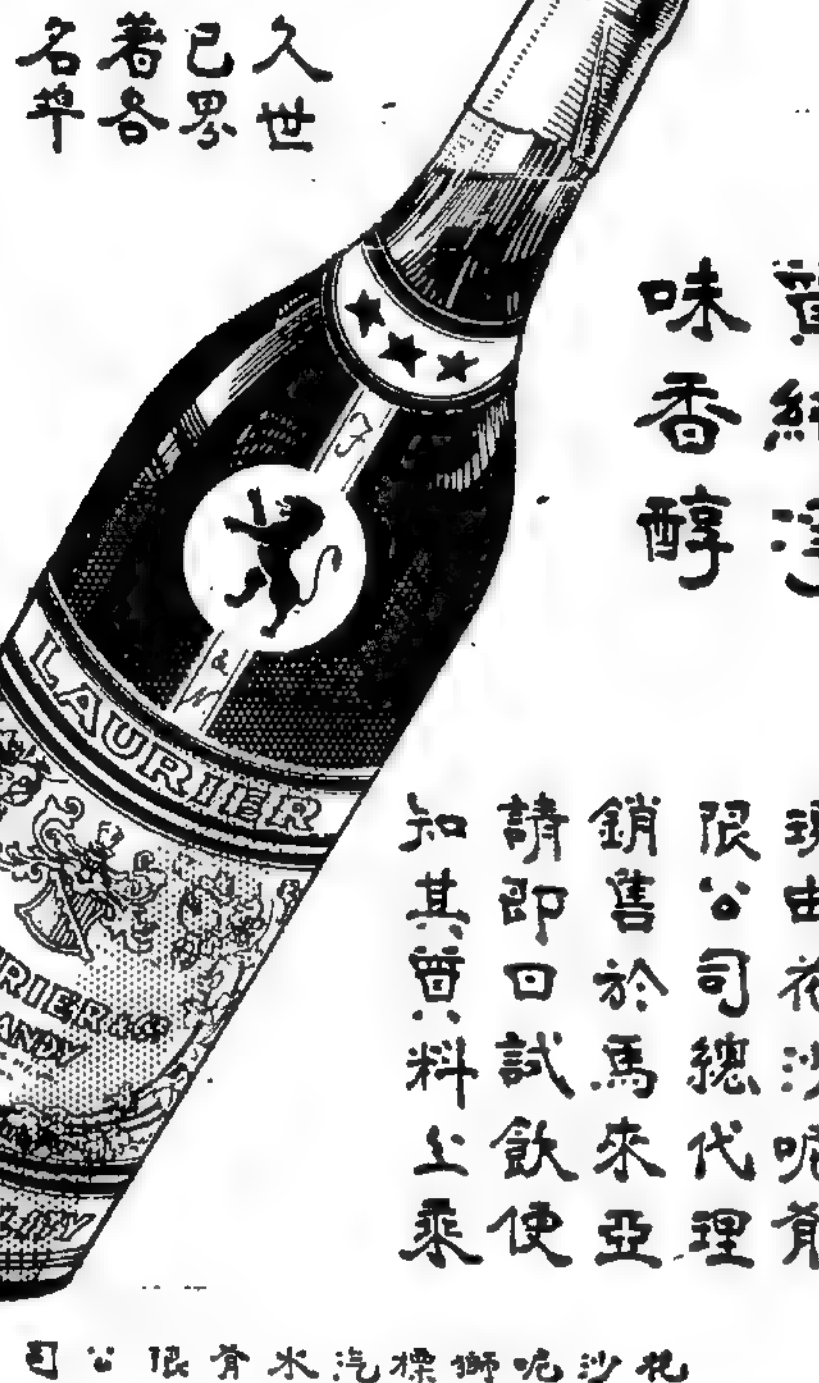 久已著名
世界各埠
質純淨
味香醇
F
& N
LAURIER
RIER & Co
ANDY
現由花沙呢有
限公司總代理
銷售於馬來亞
請即日試飲便
知其質料上乘
花沙呢獅標汽水有限公司